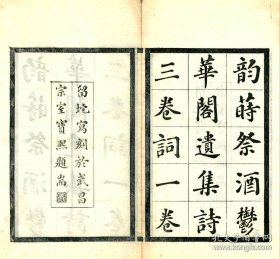 韵蒔祭酒鬱
華閣遺集詩
三卷詞一卷
留垞寫刻於武昌
宗室寶熙題耑